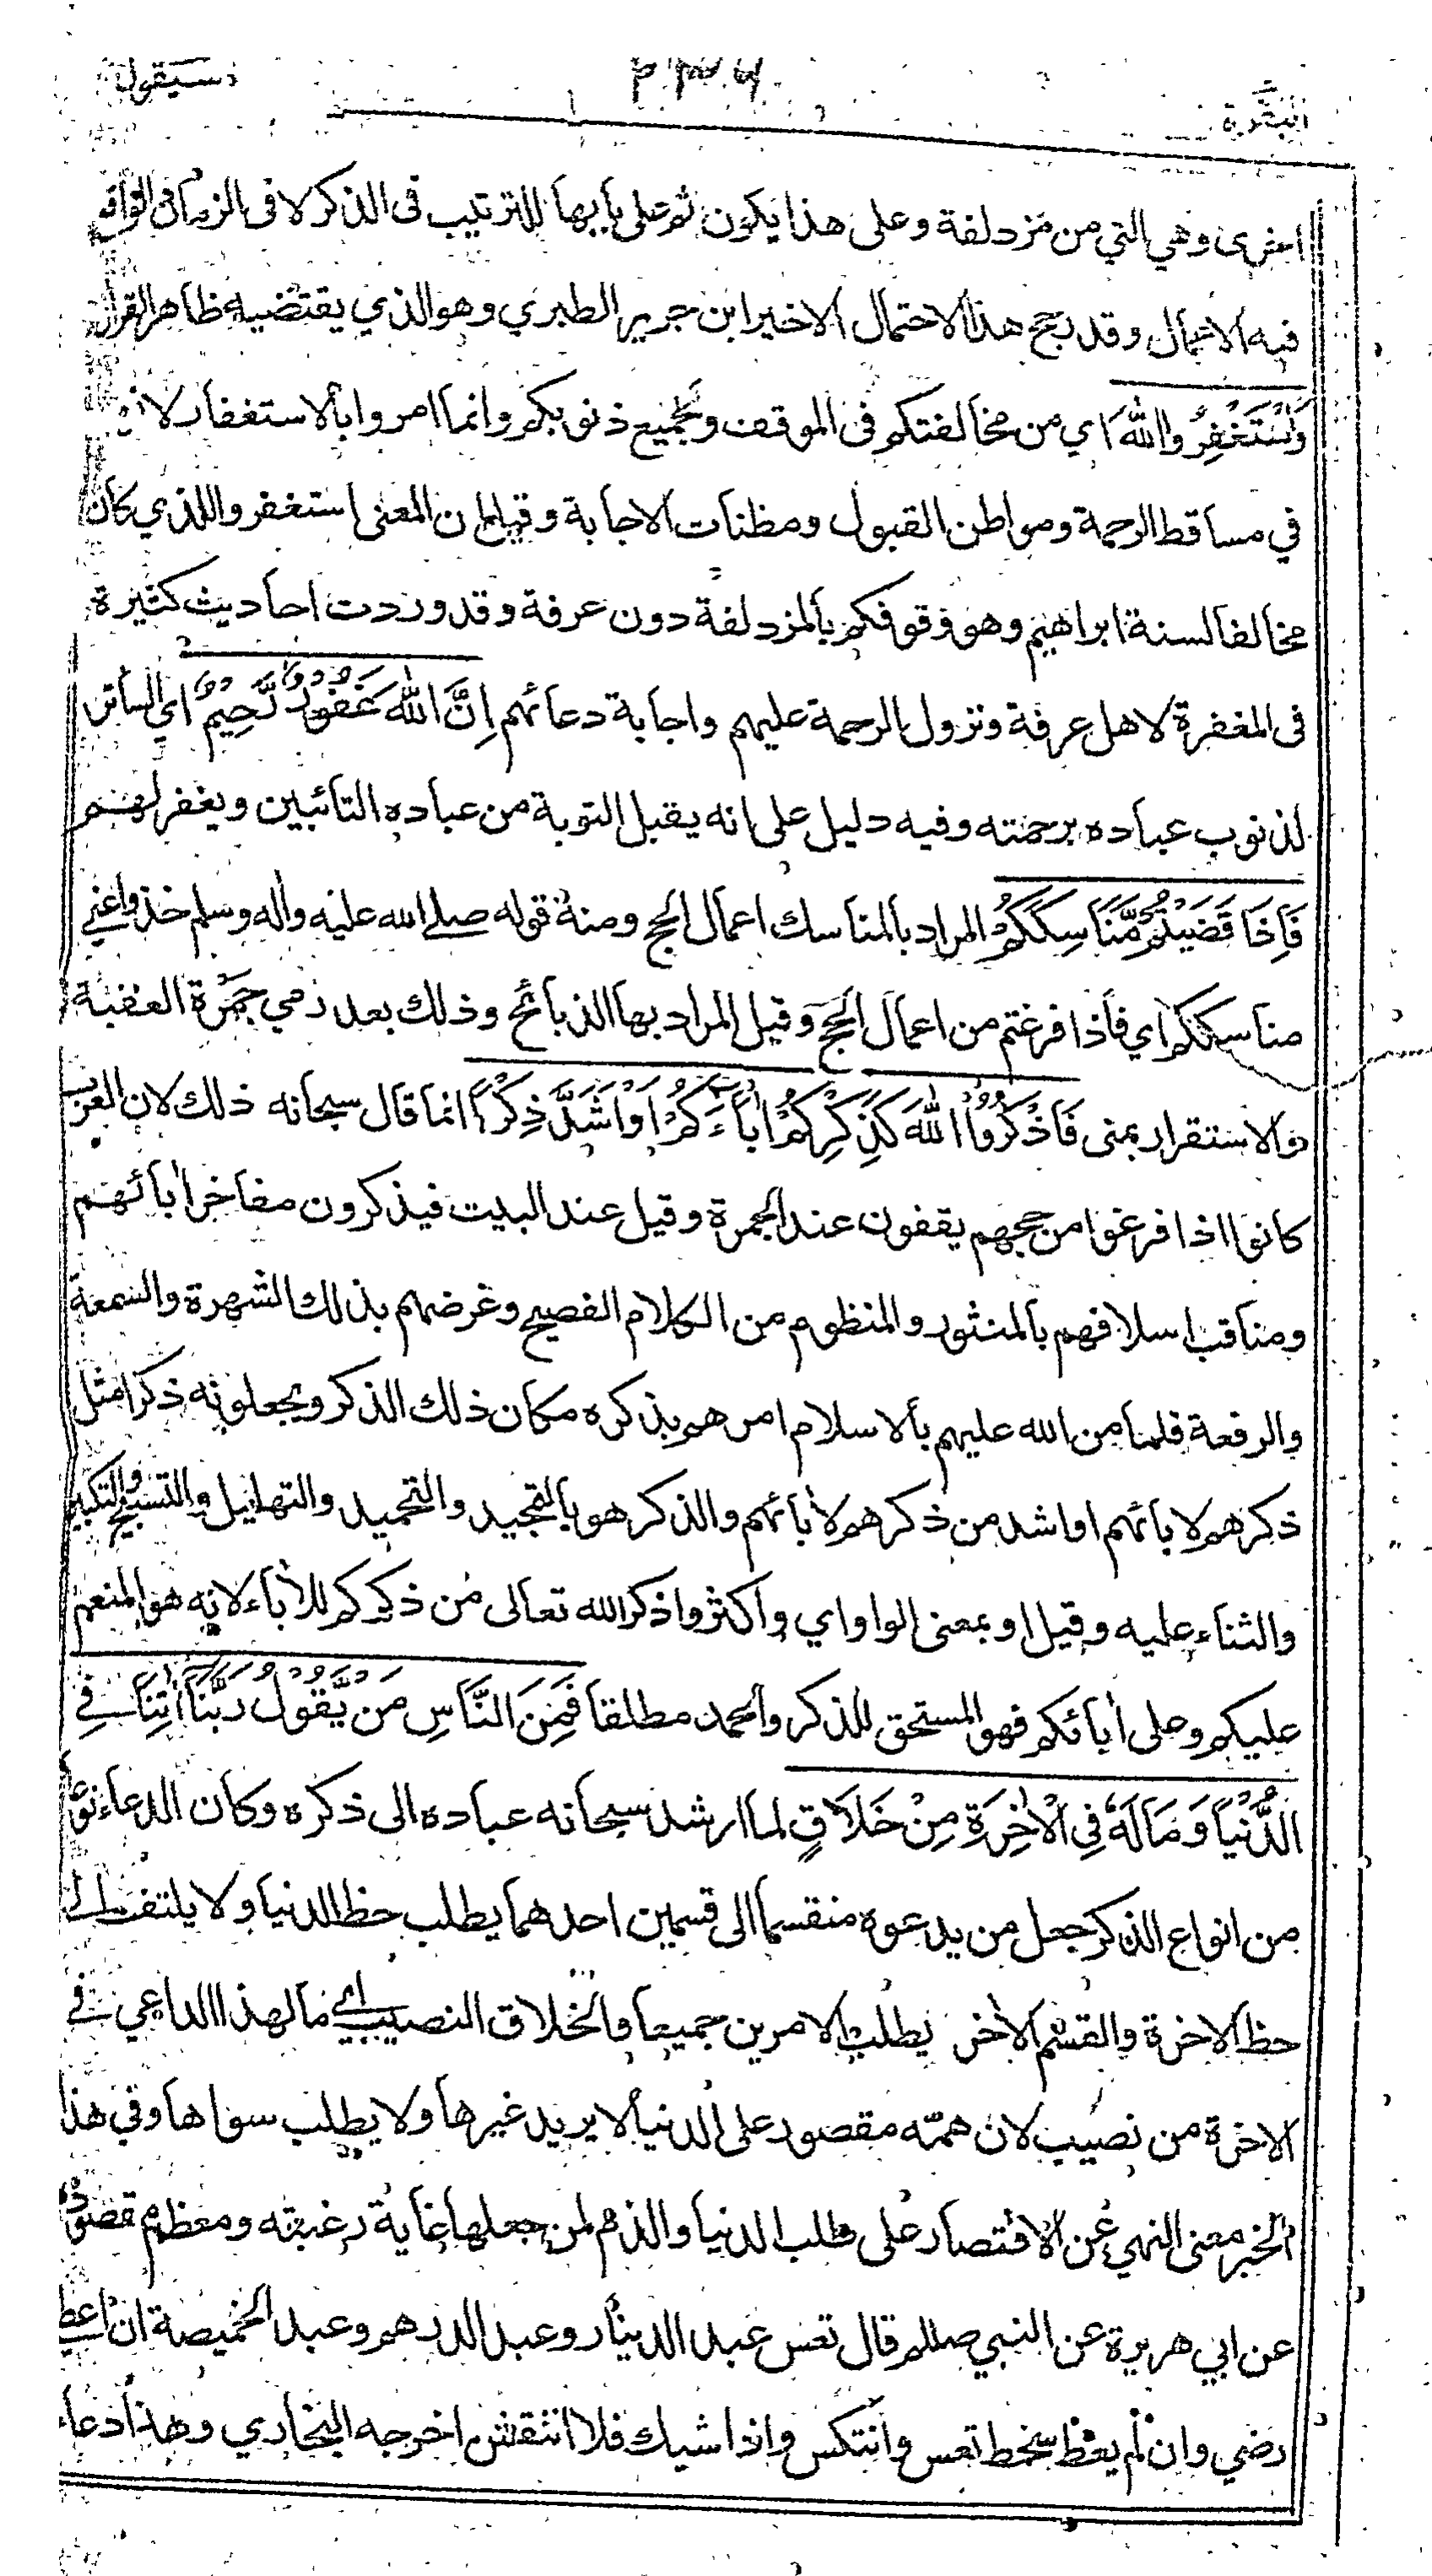 البقرة ٢٣٦ سيقول
اخرى وهي التي من مزدلفة وعلى هذا يكون ثم على بابها للترتيب فى الذكر لا فى الزمان الواقع
فيه الاعمال وقد رجح هذا الاحتمال الاخير ابن جرير الطبري وهو الذي يقتضيه ظاهر القران
وَاسْتَغْفِرُوا اللهَ اي من مخالفتكم فى الموقف ولجميع ذنوبكم وانما امروا بالاستغفار لانهم
في مساقط الرحمة ومواطن القبول ومظنات الاجابة وقيل ان المعنى استغفروا للذي كان
مخالفا لسنة ابراهيم وهو وقوفكم بالمزدلفة دون عرفة وقد وردت احاديث كثيرة
فى المغفرة لاهل عرفة ونزول الرحمة عليهم واجابة دعائهم اِنَّ اللهَ غَفُوْرٌ رَّحِيْمٌ اي الساتر
لذنوب عباده برحمته وفيه دليل على انه يقبل التوبة من عباده التائبين ويغفر لهم
فَاِذَا قَضَيْتُمْ مَّنَاسِكَكُمْ المراد بالمناسك اعمال الحج ومنه قوله صلى الله عليه واله وسلم خذوا عني
مناسككم اي فاذا فرغتم من اعمال الحج وقيل المراد بها الذبائح وذلك بعد رمي جمرة العقبة
والاستقرار بمنى فَاذْكُرُوا اللهَ كَذِكْرِكُمْ اٰبَآءَكُمْ اَوْ اَشَدَّ ذِكْرًا انما قال سبحانه ذلك لان العرب
كانوا اذا فرغوا من حجهم يقفون عند الجمرة وقيل عند البيت فيذكرون مفاخر اٰبائهم
ومناقب اسلافهم بالمنثور والمنظوم من الكلام الفصيح وغرضهم بذلك الشهرة والسمعة
والرفعة فلما من الله عليهم بالاسلام امرهم بذكره مكان ذلك الذكر ويجعلونه ذكرا مثل
ذكرهم لاٰبائهم او اشد من ذكرهم لاٰبائهم والذكر هو بالتمجيد والتحميد والتهليل والتسبيح والتكبير
والثناء عليه وقيل او بمعنى الواو اي واكثروا ذكر الله تعالى من ذكركم للاٰباء لانه هو المنعم
عليكم وعلى اٰبائكم فهو المستحق للذكر والحمد مطلقا فَمِنَ النَّاسِ مَنْ يَّقُوْلُ رَبَّنَا اٰتِنَا فِي
الدُّنْيَا وَمَا لَهٗ فِى الْاٰخِرَةِ مِنْ خَلَاقٍ لما ارشد سبحانه عباده الى ذكره وكان الدعاء نوعا
من انواع الذكر جعل من يدعوه منقسما الى قسمين احدهما يطلب حظ الدنيا ولا يلتفت الى
حظ الاخرة والقسم الاٰخر يطلب الامرين جميعا والخلاق النصيب اي ما لهذا الداعي في
الاخرة من نصيب لان همّه مقصور على الدنيا لا يريد غيرها ولا يطلب سواها وفي هذا
الخبر معنى النهي عن الاقتصار على طلب الدنيا والذم لمن جعلها غاية رغبته ومعظم مقصوده
عن ابي هريرة عن النبي صللم قال تعس عبد الدينار وعبد الدرهم وعبد الخميصة ان اعطي
رضي وان لم يعط سخط تعس وانتكس واذا شيك فلا انتقش اخرجه البخاري وهذا دعاء